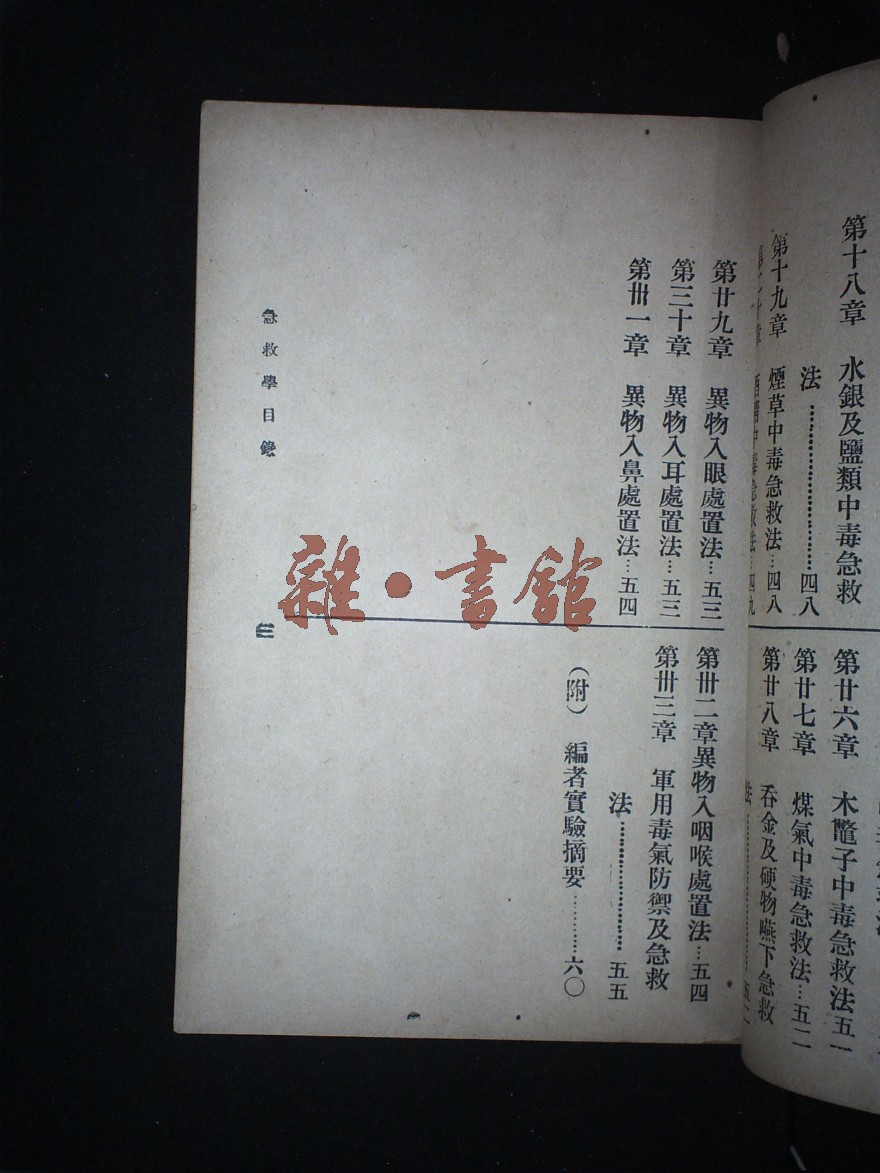 第十八章　水銀及鹽類中毒急救
法…………………四八
第十九章　煙草中毒急救法…四八
中毒急救法…四九
第廿六章　木鼈子中毒急救法五一
第廿七章　煤氣中毒急救法…五二
第廿八章　吞金及硬物嚥下急救
法…………………五二
第廿九章　異物入眼處置法…五三
第三十章　異物入耳處置法…五三
第卅一章　異物入鼻處置法…五四
第卅二章異物入咽喉處置法…五四
第卅三章　軍用毒氣防禦及急救
法…………………五五
（附）　編者實驗摘要…………六〇
急救學目錄
三
雜·書舘